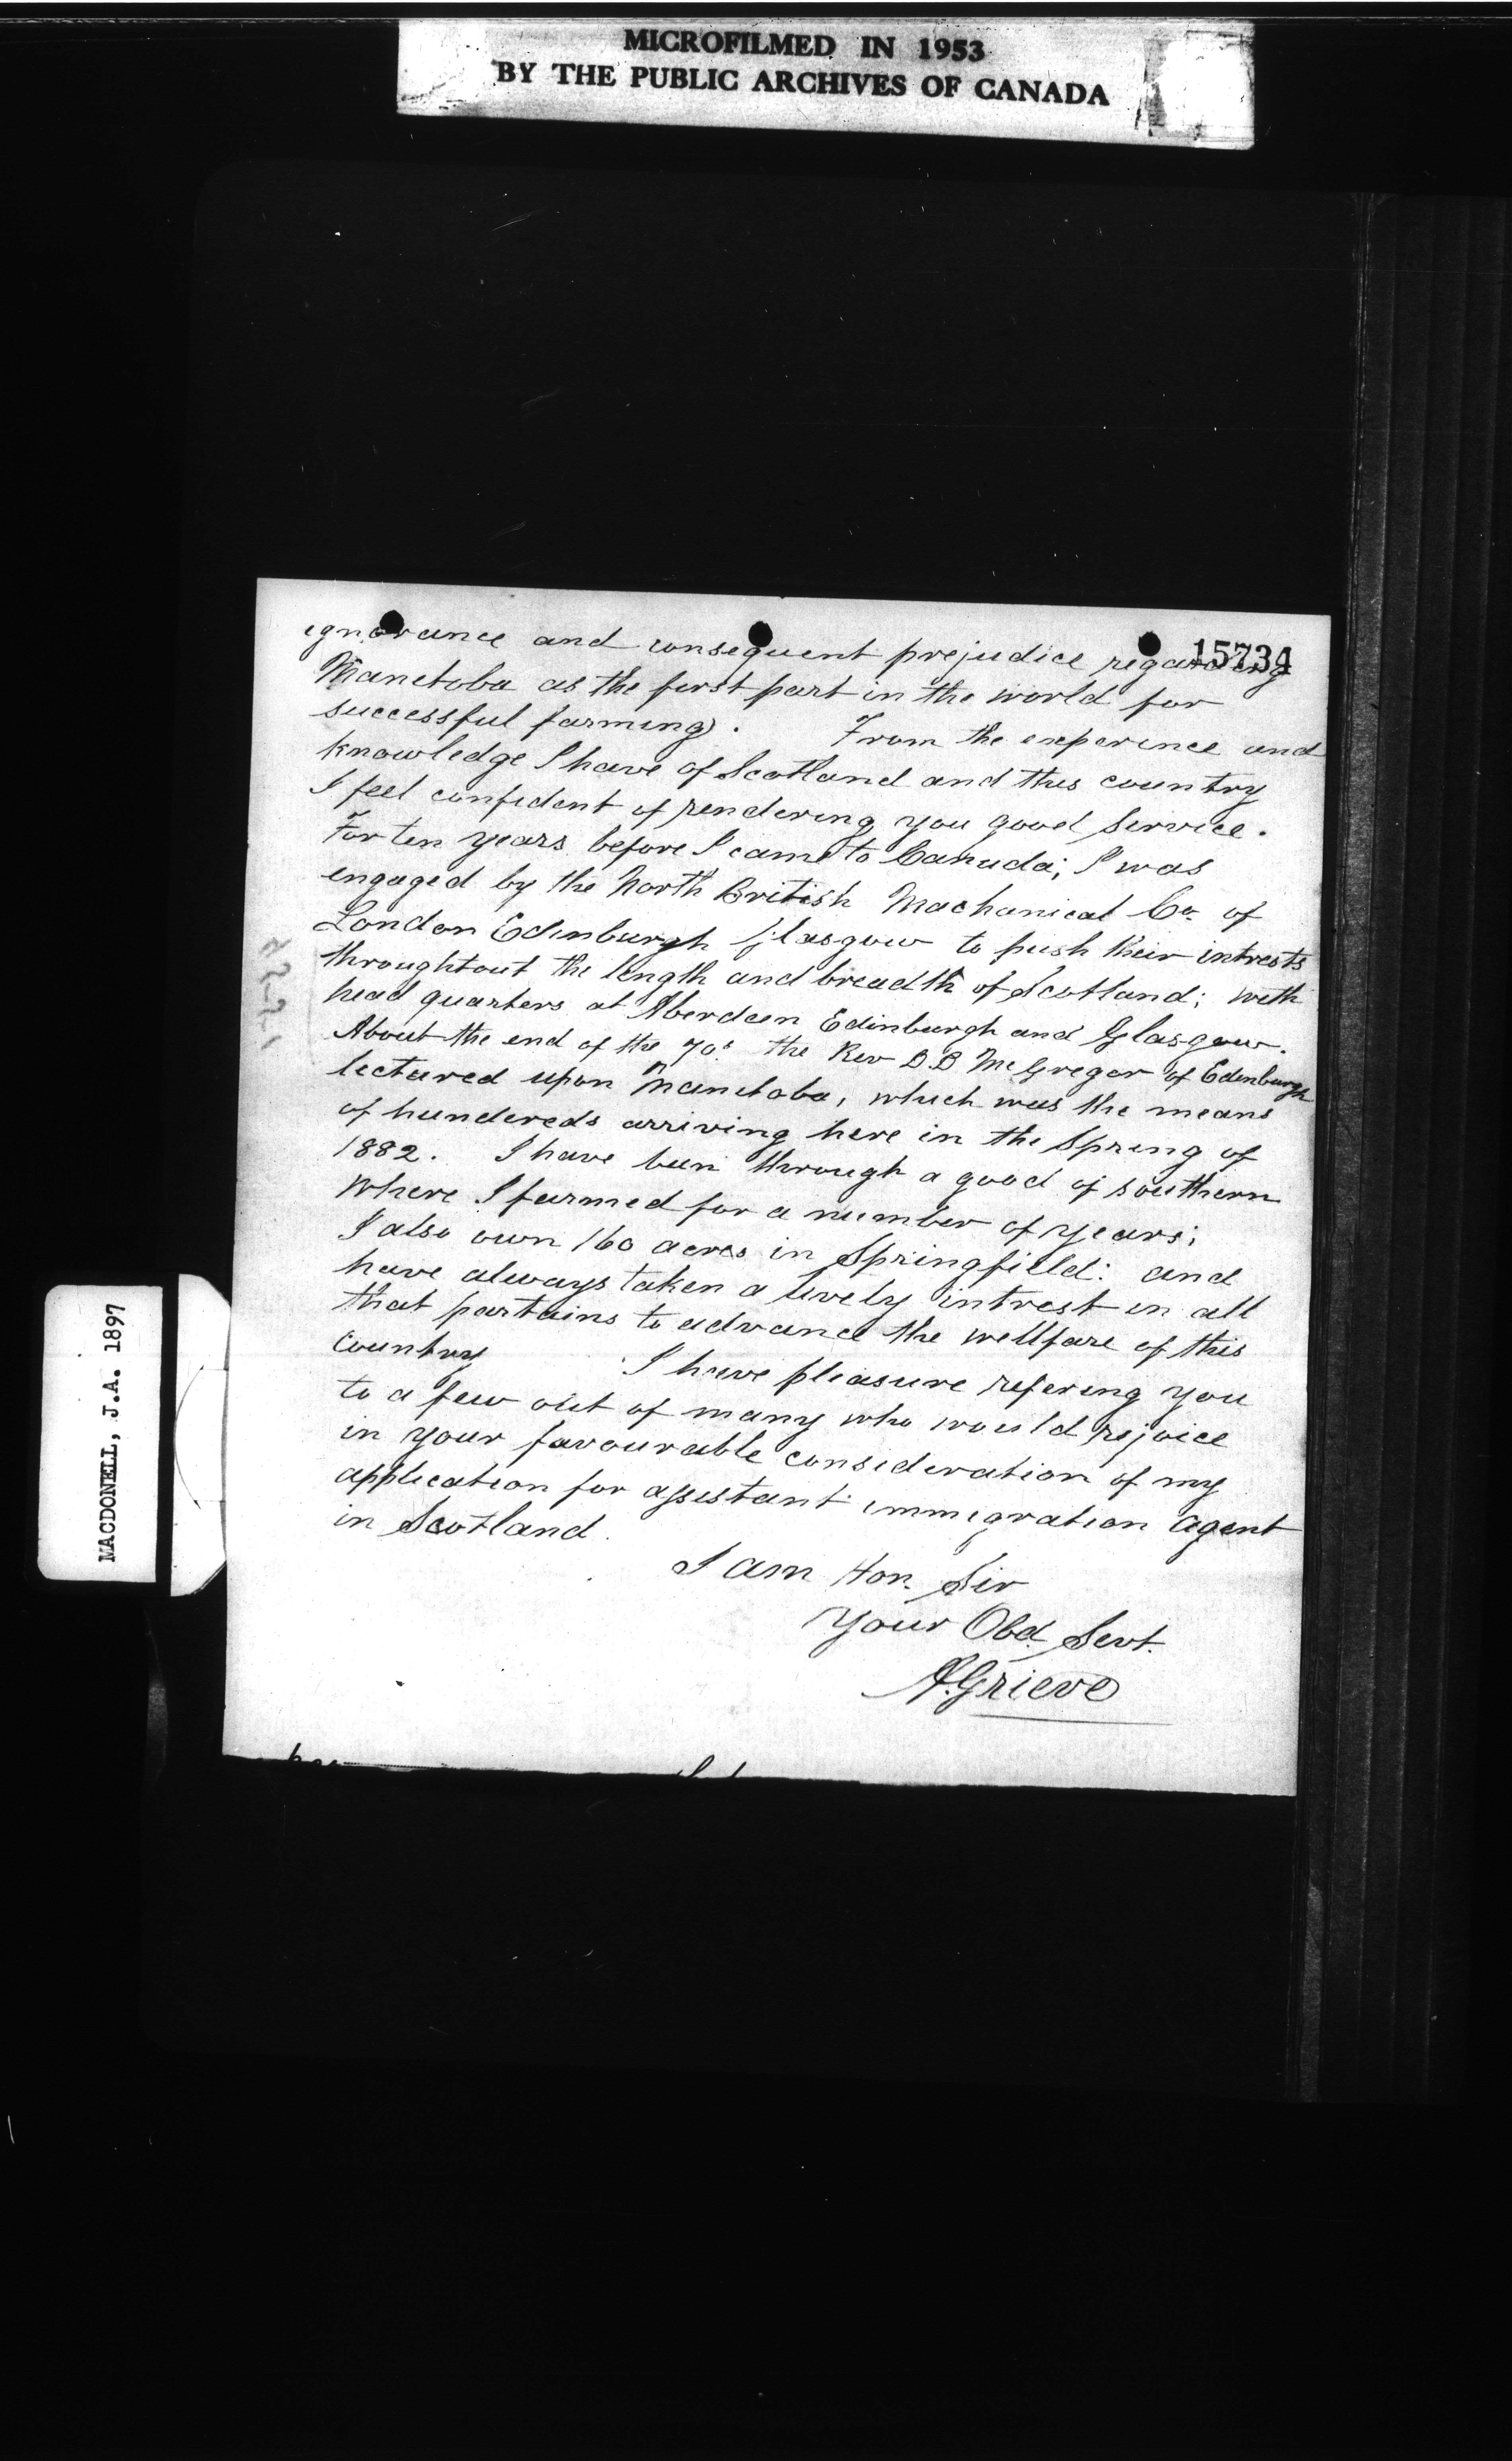 MICROFILMED IN 1953
BY THE PUBLIC ARCHIVES OF CANADA
15734
ignorance and consequent prejudice regarding
Manetoba as the first part in the world for
successful farming). From the experince and
knowledge I have of Scotland and this country
I feel confident of rendering you good Service.
For ten years before I came to Canada; I was
engaged by the North British Machanical Co. of
London Edinburgh Glasgow to push their intrests
throughtout the length and breadth of Scotland; with
head quarters at Aberdeen Edinburgh and Glasgow.
About the end of the 70s the Rev D.D McGregor of Edinburgh
lectured upon Manitoba, which was the means
of hundereds arriving here in the Spring of
1882. I have been through a good of southern
Where I farmed for a number of years;
I also own 160 acres in Springfield: and
have always taken a lively intrest in all
that partains to advance the wellfare of this
Country I have pleasure refering you
to a few out of many who would rejoice
in your favourable consideration of my
application for assistant immigration agent
in Scotland.
I am Hon. Sir
Your Obd. Servt.
A. Grieve
MACDONELL, J.A. 1897